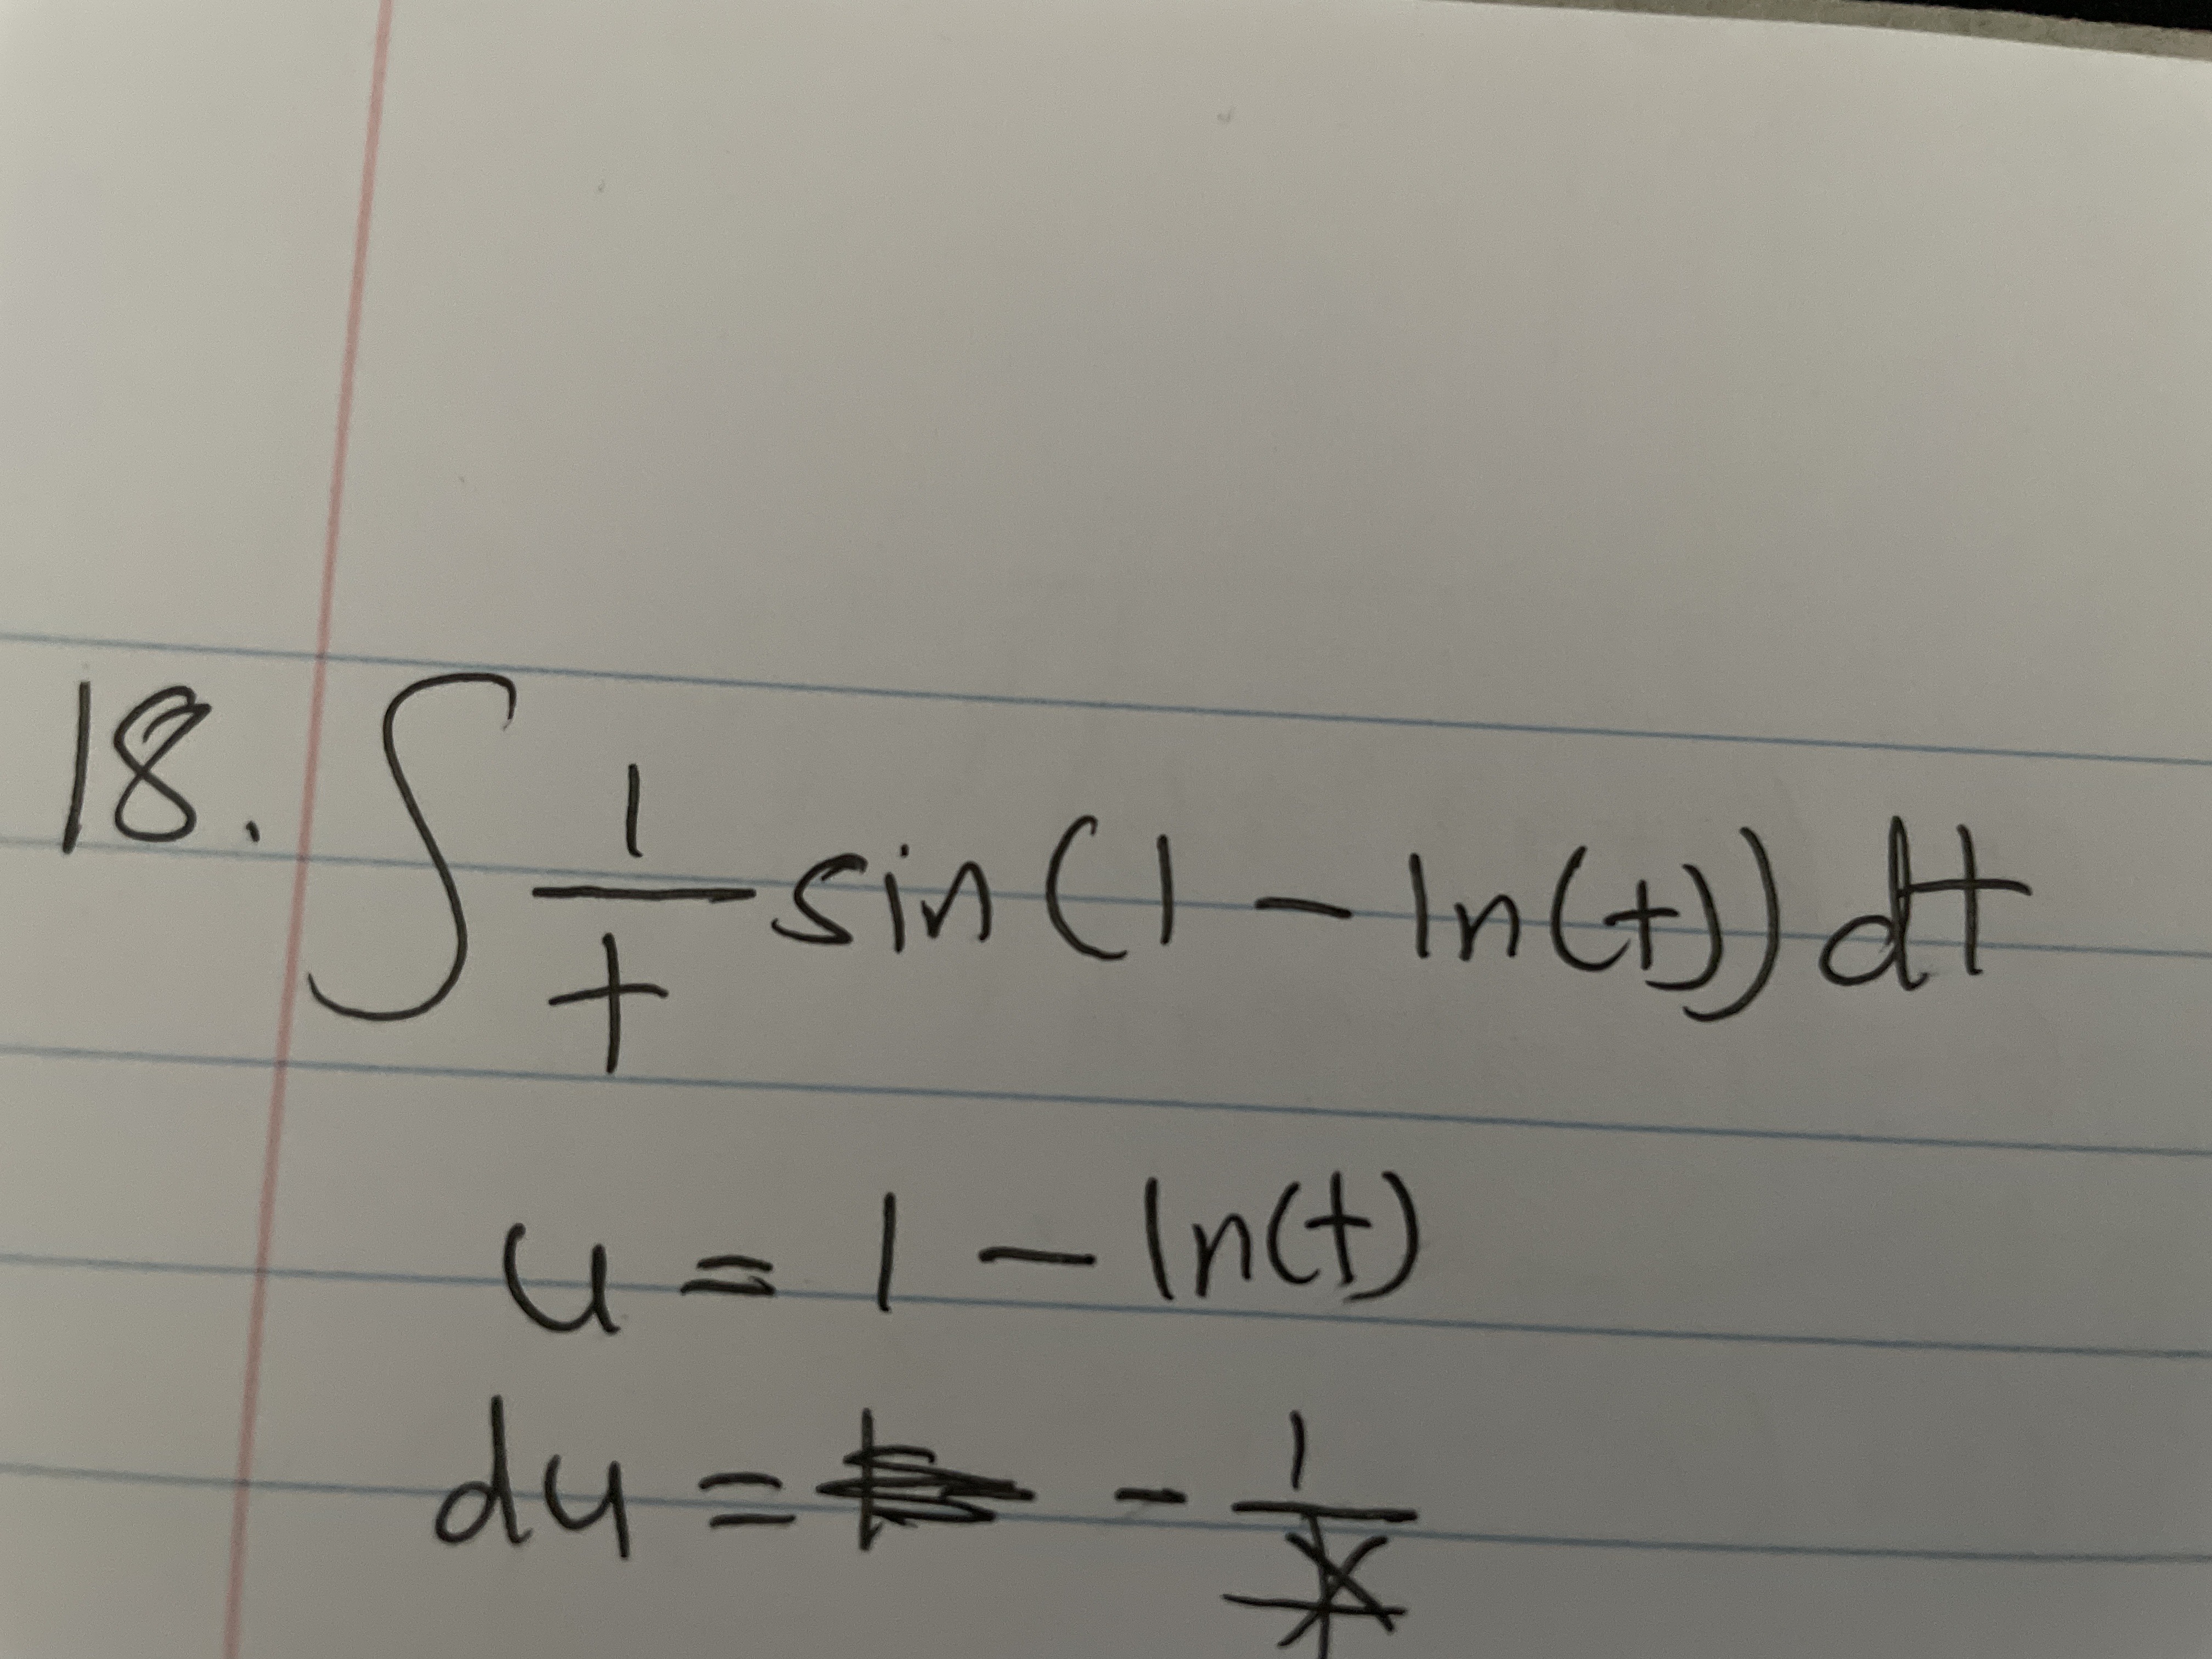 18. ∫ 1/t sin(1 - ln(t)) dt
u = 1 - ln(t)
du = - 1/t